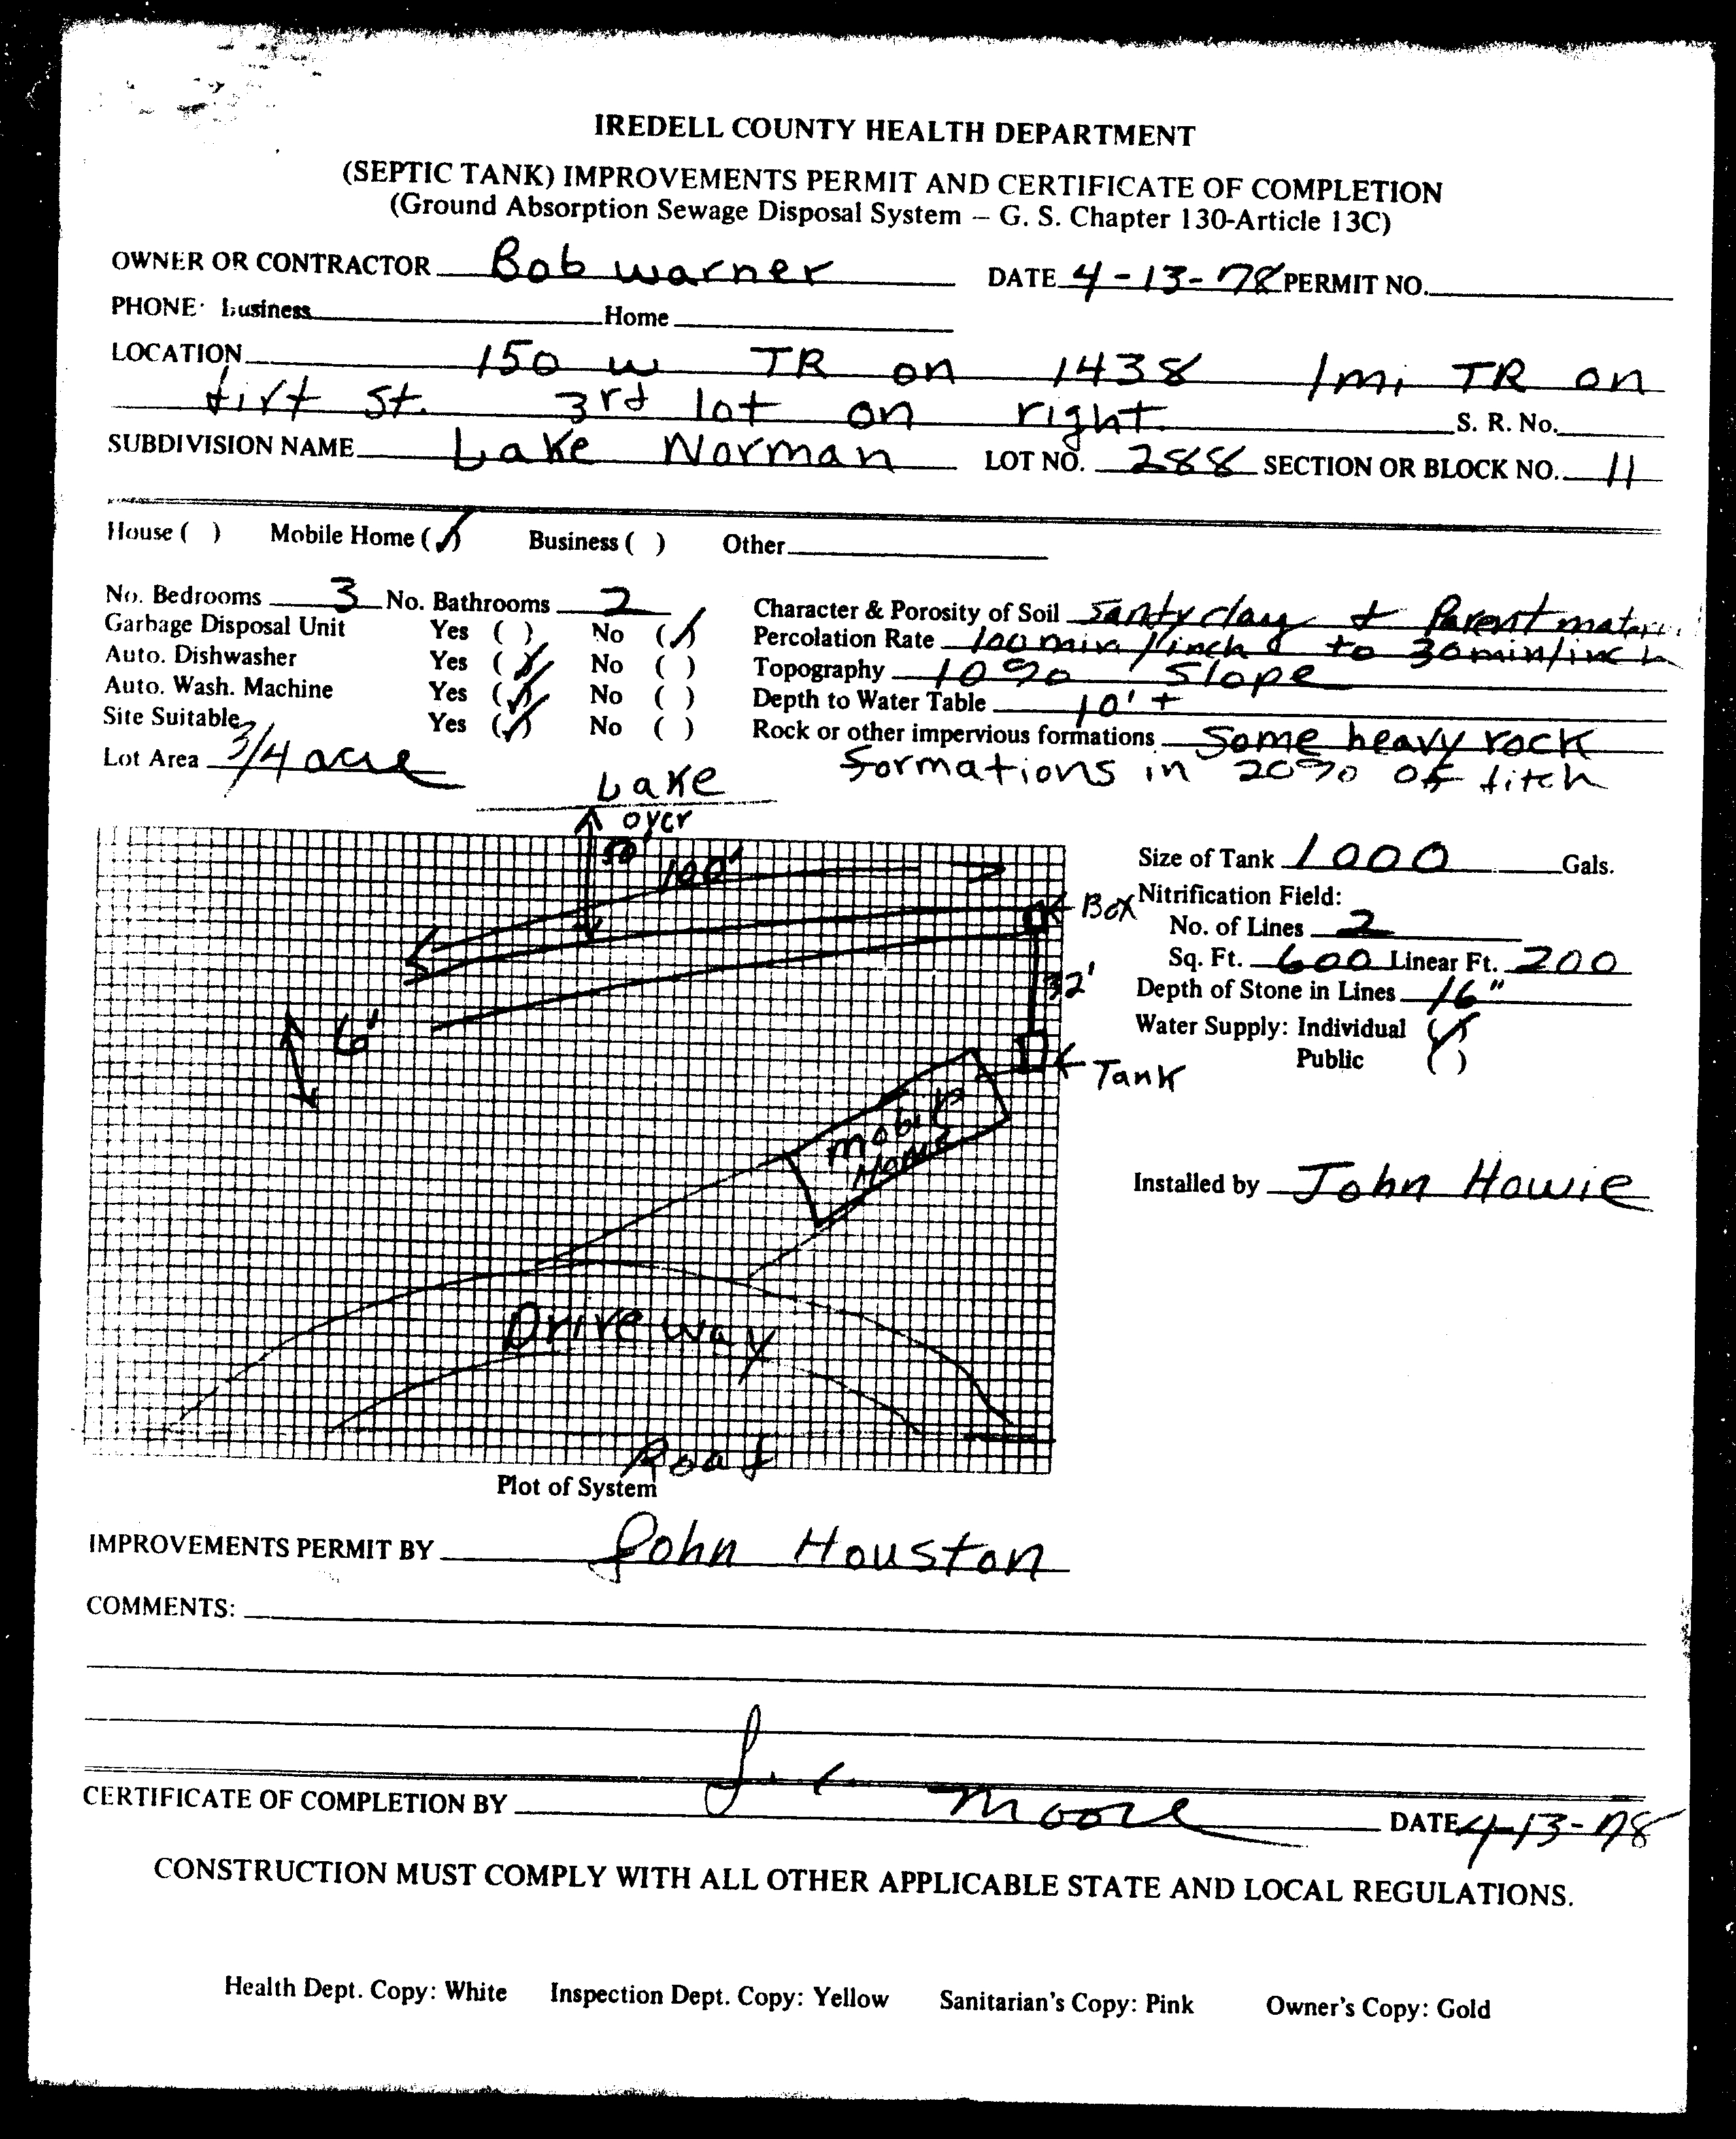 IREDELL COUNTY HEALTH DEPARTMENT
(SEPTIC TANK) IMPROVEMENTS PERMIT AND CERTIFICATE OF COMPLETION
(Ground Absorption Sewage Disposal System – G. S. Chapter 130-Article 13C)
OWNER OR CONTRACTOR Bob Warner DATE 4-13-78 PERMIT NO.
PHONE: Business Home
LOCATION 150 W TR on 1438 1mi TR on
dirt St. 3rd lot on right. S. R. No.
SUBDIVISION NAME Lake Norman LOT NO. 288 SECTION OR BLOCK NO. 11
House ( ) Mobile Home (✓) Business ( ) Other
No. Bedrooms 3 No. Bathrooms 2
Garbage Disposal Unit Yes ( ) No (✓)
Auto. Dishwasher Yes (✓) No ( )
Auto. Wash. Machine Yes (✓) No ( )
Site Suitable Yes (✓) No ( )
Lot Area 3/4 acre
Character & Porosity of Soil Sandy clay & Parent material
Percolation Rate 100 min/inch to 30 min/inch
Topography 10% Slope
Depth to Water Table 10' +
Rock or other impervious formations Some heavy rock
formations in 20% of ditch
Lake
over
50'
100'
Box
32'
6'
Tank
Mobile
Home
Driveway
Road
Plot of System
Size of Tank 1000 Gals.
Nitrification Field:
No. of Lines 2
Sq. Ft. 600 Linear Ft. 200
Depth of Stone in Lines 16"
Water Supply: Individual (✓)
Public ( )
Installed by John Howie
IMPROVEMENTS PERMIT BY John Houston
COMMENTS:
CERTIFICATE OF COMPLETION BY Moore DATE 4-13-78
CONSTRUCTION MUST COMPLY WITH ALL OTHER APPLICABLE STATE AND LOCAL REGULATIONS.
Health Dept. Copy: White Inspection Dept. Copy: Yellow Sanitarian's Copy: Pink Owner's Copy: Gold